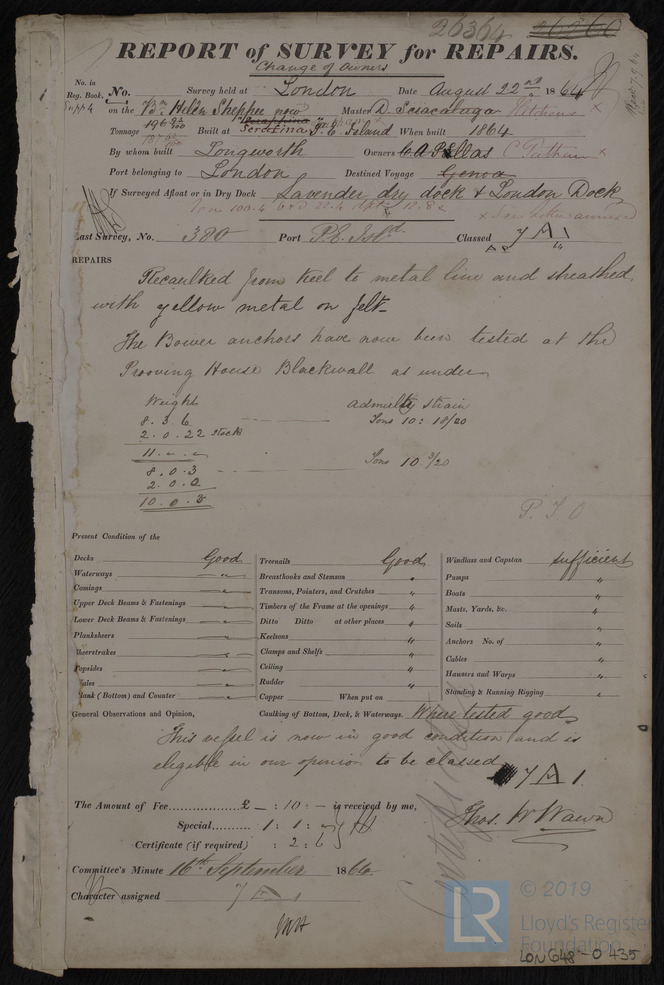 26364 26260
REPORT of SURVEY for REPAIRS.
Change of Owners
No. in Reg. Book, No. Survey held at London Date August 22nd 1864
Supp 4 on the Bn Helen Sheppee now Master D. Sciacaluga
Tonnage 196 92/100 Built at P. E. Island When built 1864
By whom built Longworth Owners
Port belonging to London Destined Voyage Genoa
If Surveyed Afloat or in Dry Dock Lavender dry dock & London Dock
Last Survey, No. 380 Port P. E. Isld Classed 7 A 1
REPAIRS
Recaulked from keel to metal line and sheathed
with yellow metal on felt
The Bower anchors have now been tested at the
Prooving House Blackwall as under
Weight Admiralty strain
8. 3. 6 Tons 10 : 18/20
2. 0. 22 stock
11. - . -
8. 0. 3 Tons 10 3/20
2. 0. 0
10. 0. 3
P. T. O
Present Condition of the
Decks Good Treenails Good Windlass and Capstan sufficient
Waterways " Breasthooks and Stemson " Pumps "
Comings " Transoms, Pointers, and Crutches " Boats "
Upper Deck Beams & Fastenings " Timbers of the Frame at the openings " Masts, Yards, &c. "
Lower Deck Beams & Fastenings " Ditto Ditto at other places " Sails "
Planksheers " Keelsons " Anchors No. of "
Sheerstrakes " Clamps and Shelfs " Cables "
Topsides " Ceiling " Hawsers and Warps "
Wales " Rudder " Standing & Running Rigging "
Plank (Bottom) and Counter " Copper When put on
General Observations and Opinion, Caulking of Bottom, Deck, & Waterways. Where tested good
This vessel is now in good condition and is
eligible in our opinion to be classed
7 A 1.
The Amount of Fee................£ – : 10 : – is received by me,
Special.......... 1 : 1 : –
Thos. W Wawn
Certificate (if required) : 2 : 6
Committee's Minute 16th September 1864
Character assigned 7 A 1
© 2019
LR Lloyd's Register
Foundation
LON648-0435